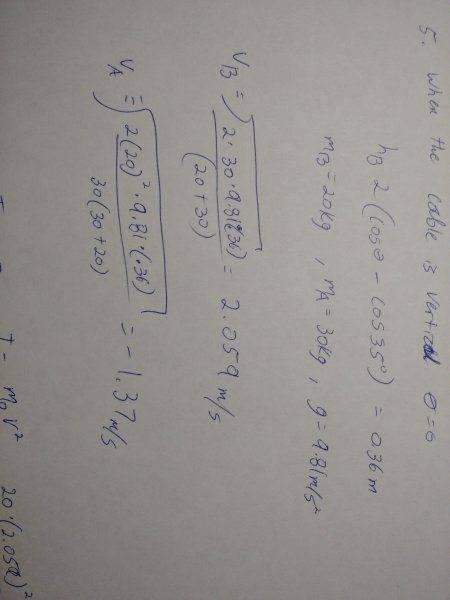 5. When the cable is vertical θ=0
hB 2(cosθ - cos35°) = 0.36m
mB=20kg, mA=30kg, g=9.81m/s²
VB = √(2·30·9.81(.36) / (20+30)) = 2.059 m/s
VA = √(2(20)²·9.81·(.36) / 30(30+20)) = -1.37 m/s
T = mB V² 20·(2.059)²